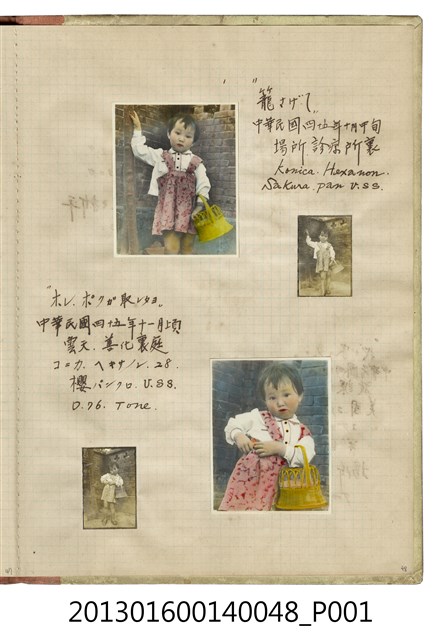 "籠さげて"
中華民國四五年十月中旬
場所 診療所裏
Konica. Hexanon.
Sakura. pan U.S.S.
中華民國四五年十一月頃
曇天. 善化裏庭
コニカ. ヘキサノン. 28.
櫻パンクロ. U.S.S.
D.76. Tone.
201301600140048_P001